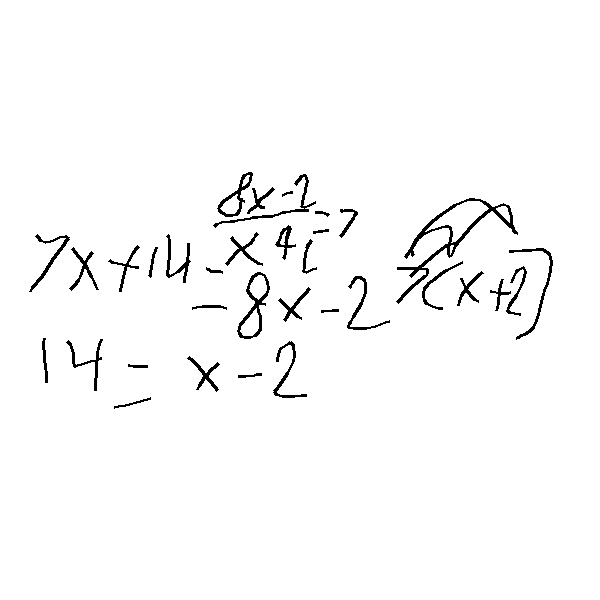 8x-2
x+2 = 7
7x+14 = 8x-2 7(x+2)
14 = x-2